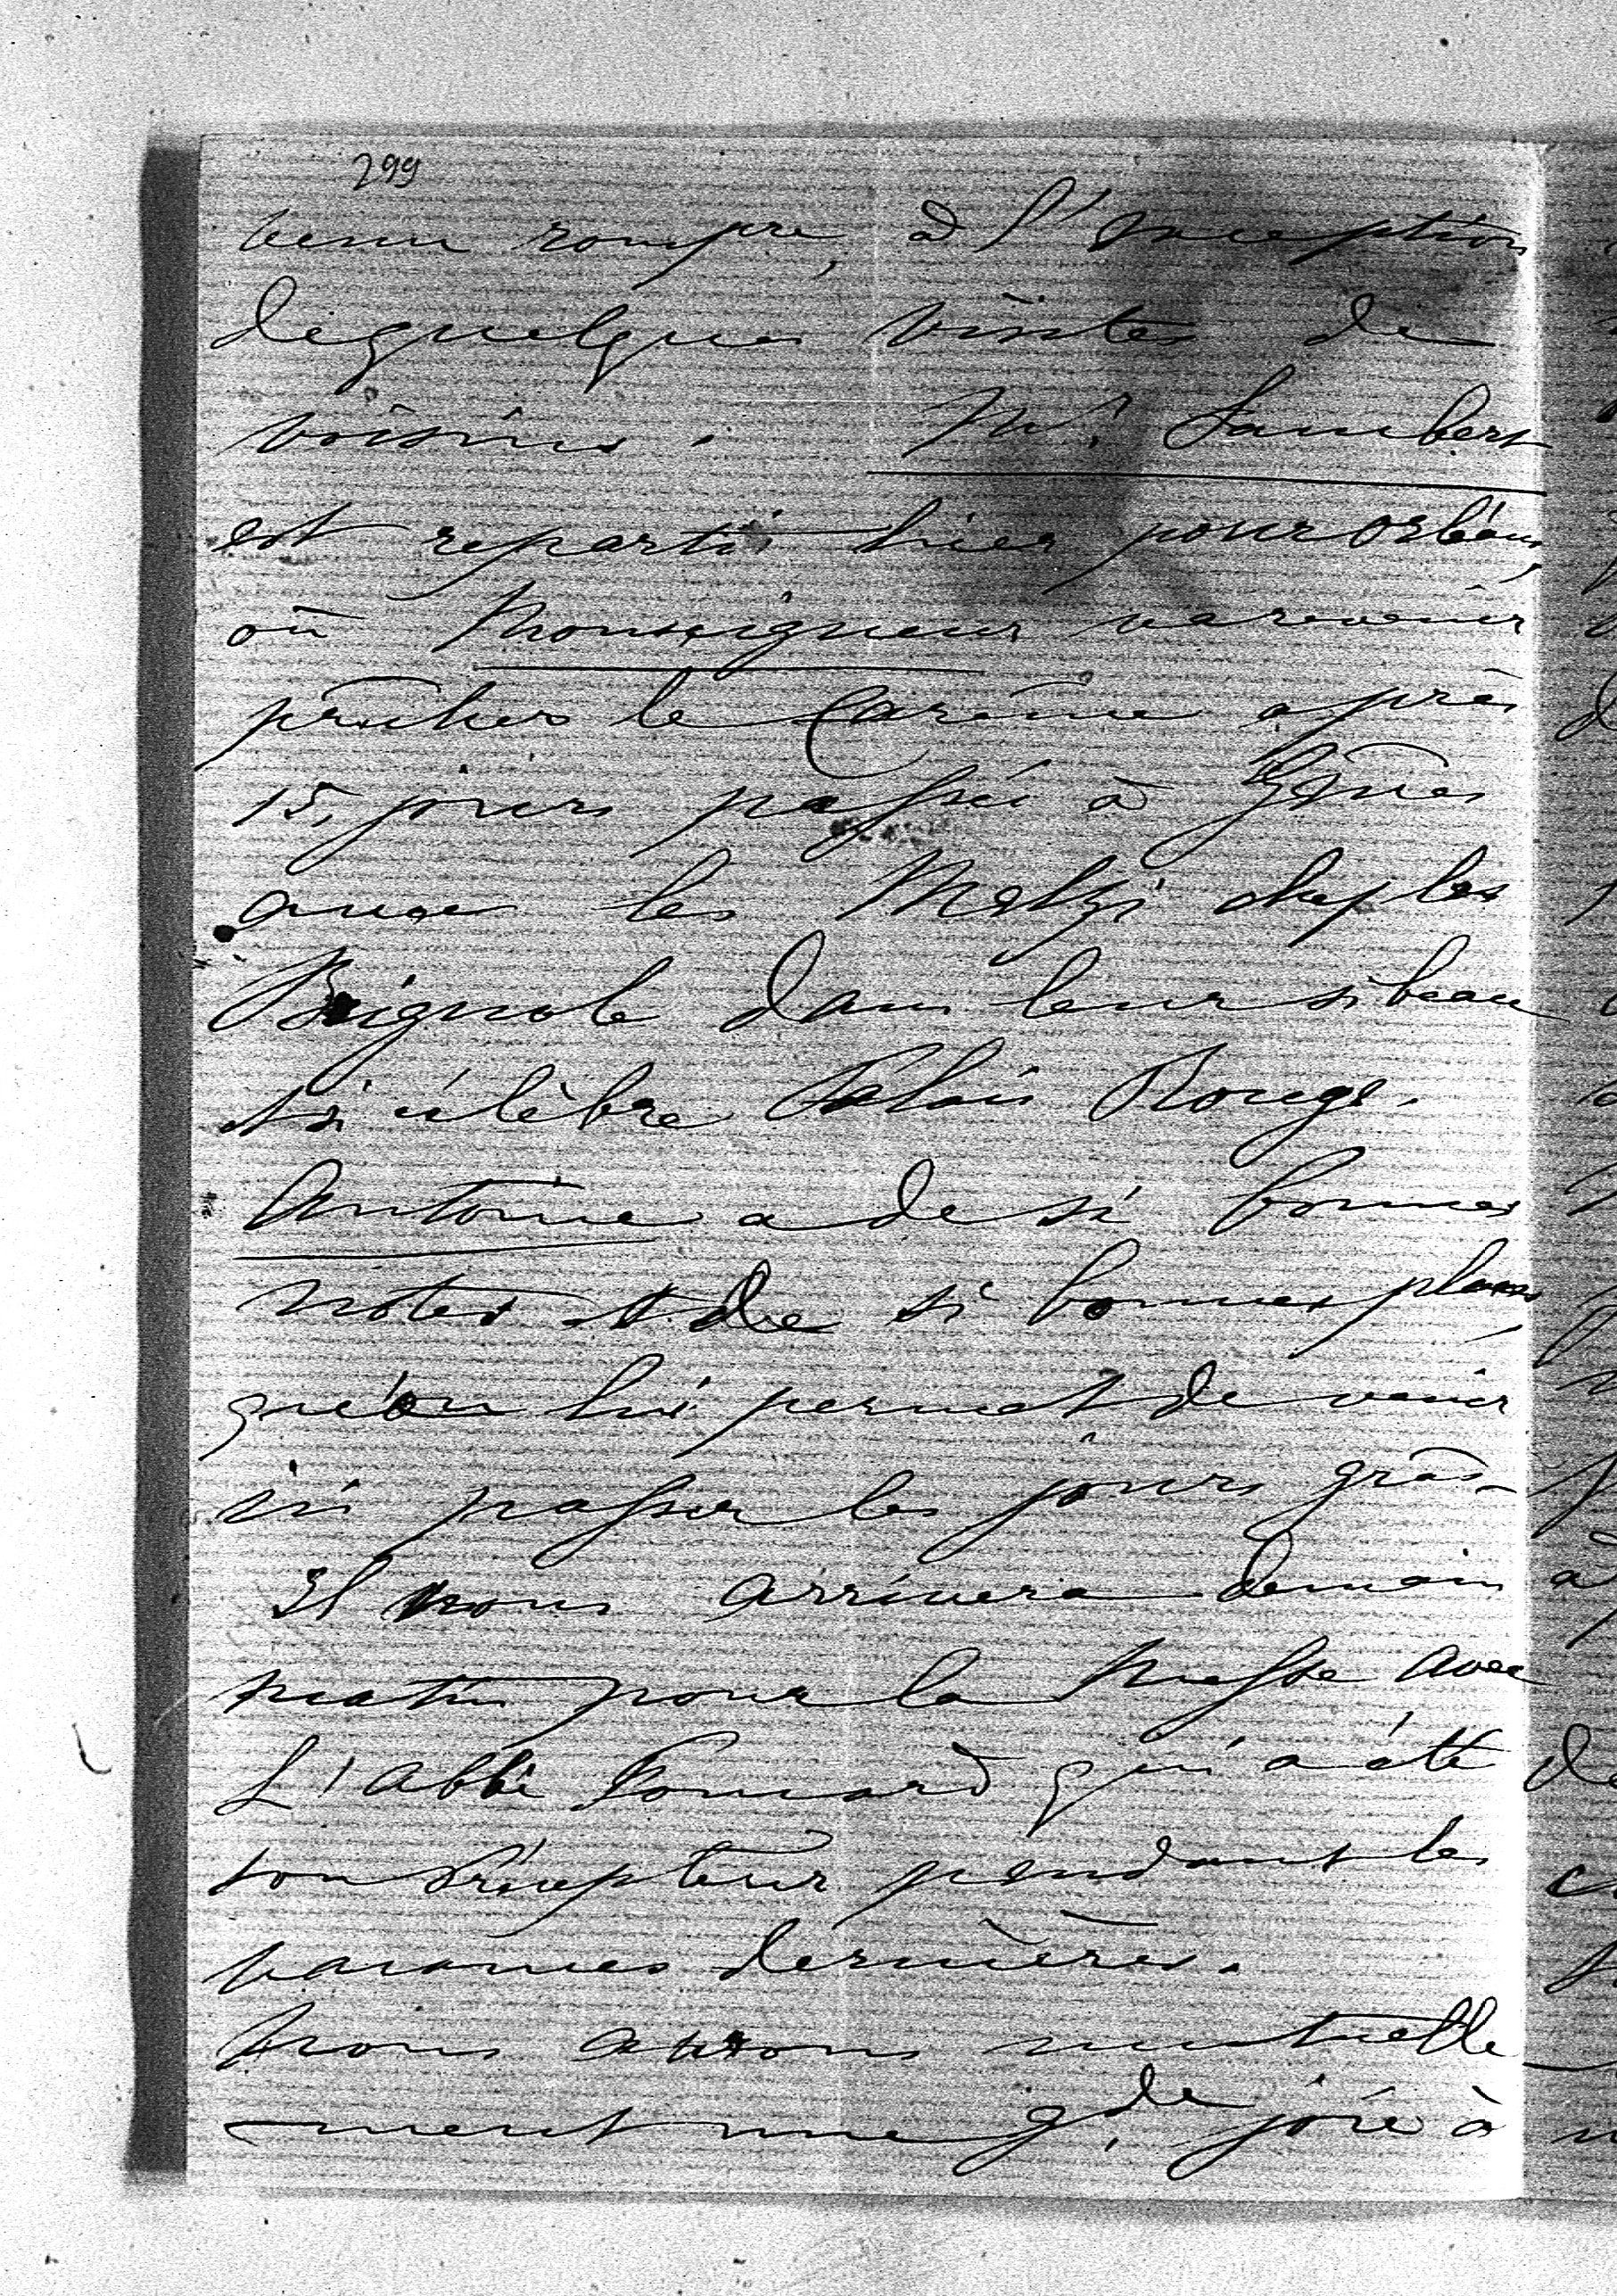 299
venu rompre, à l'exception
de quelques visites de
voisins. Mr. Lambert
est reparti hier pour Orléans,
où Monseigneur va revenir
prêcher le Carême après
15, jours passés à Gênes
avec les Melzi chez les
Brignole dans leur si beau
et si célèbre Palais Rouge.
Antoine a de si bonnes
notes et de si bonnes places,
qu'on lui permet de venir
ici passer les jours gras.
Il nous arrivera demain
matin pour la Messe avec
L'abbé qui a été
son Précepteur pendant les
vacances dernières.
Nous aurons mutuelle
-ment une gde joie à